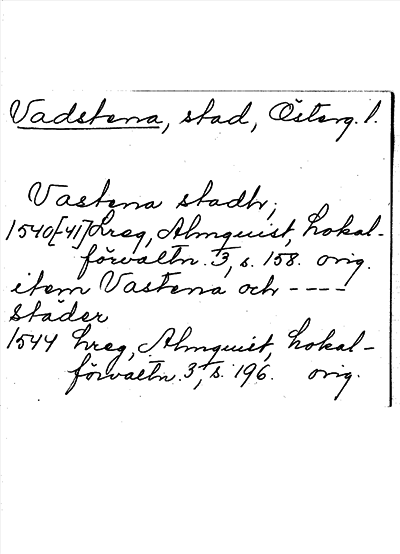 Vadstena, stad, Österg. l.
Vastena stadh;
1540[-41] Lreg, Almquist, Lokal-
förvaltn. 3, s. 158. orig.
item Vastena och ----
städer
1544 Lreg, Almquist, Lokal-
förvaltn. 3, s. 196. orig.